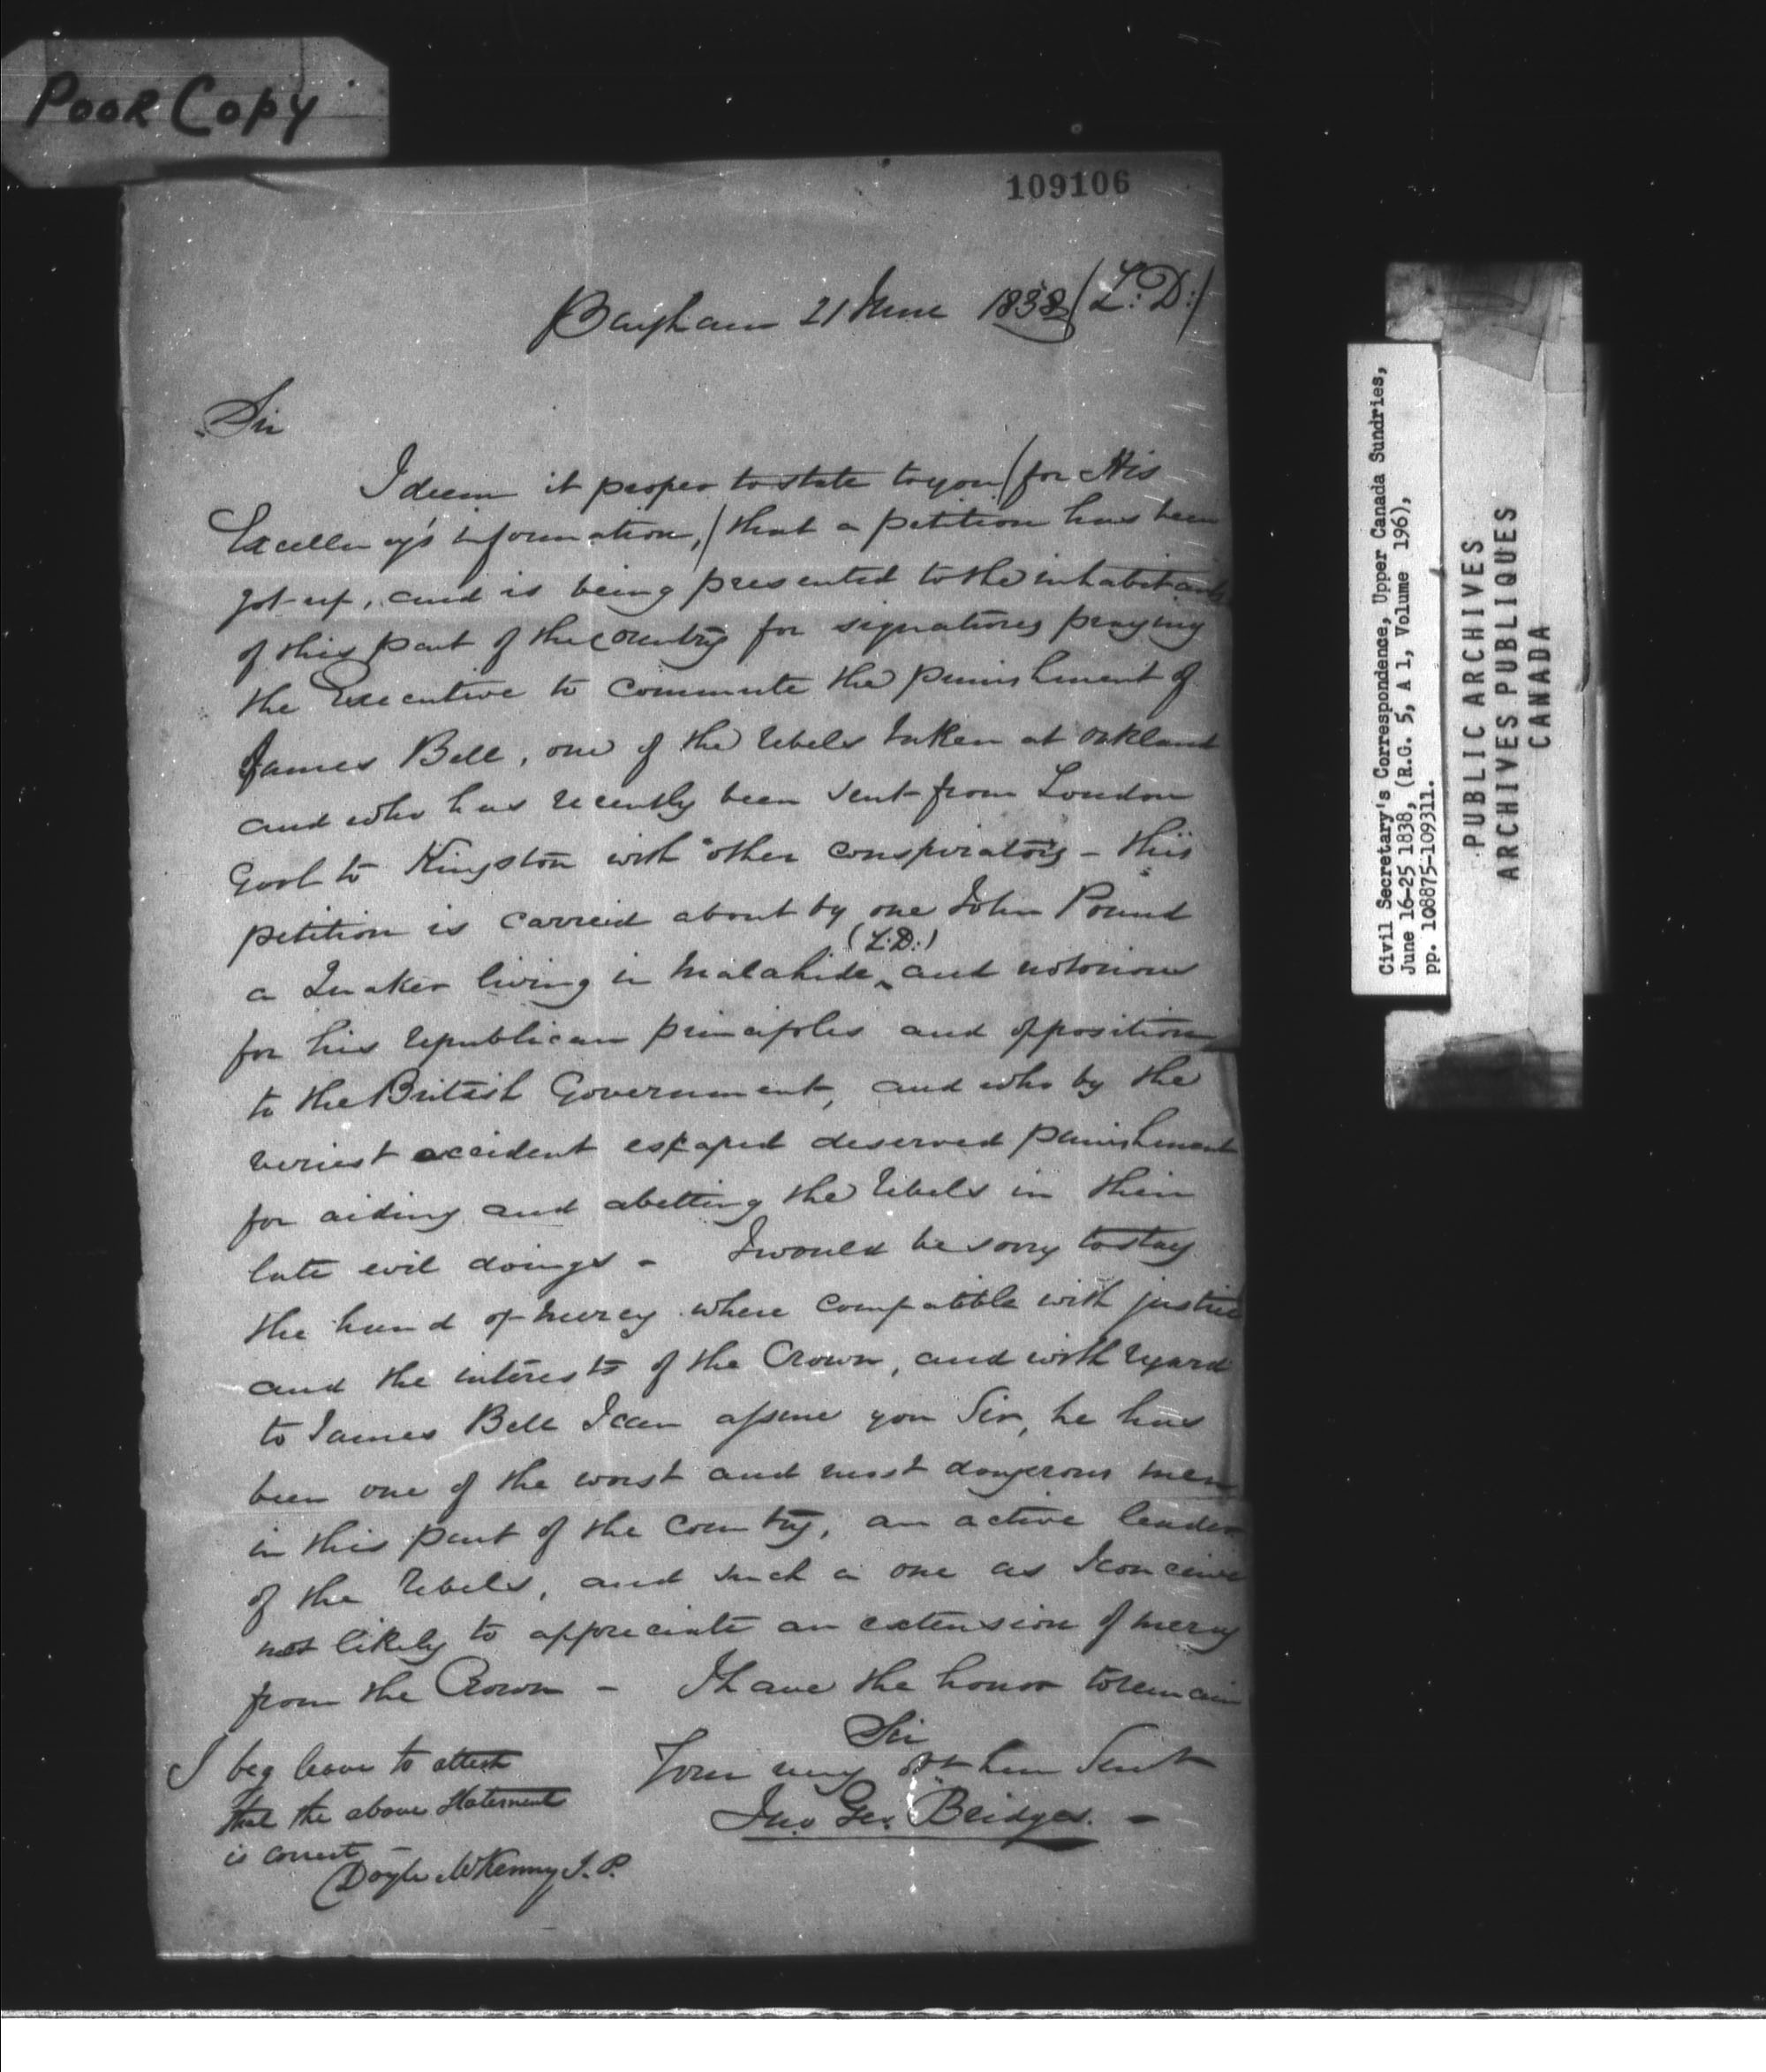 Poor Copy
109106
Bayham 21 June 1838 (L: D:)
Sir
I deem it proper to state to you (for His
Excellency's information,) that a petition has been
got up, and is being presented to the inhabitants
of this part of the country for signatures praying
the Executive to commute the punishment of
James Bell, one of the rebels taken at Oakland
and who has recently been sent from London
Gaol to Kingston with other conspirators - this
petition is carried about by one John Pound
(L: D:)
a Quaker living in Malahide, and notorious
for his republican principles and opposition
to the British Government, and who by the
veriest accident escaped deserved punishment
for aiding and abetting the rebels in their
late evil doings - I would be sorry to stay
the hand of mercy where compatible with justice
and the interests of the Crown, and with regard
to James Bell I can assure you Sir, he has
been one of the worst and most dangerous men
in this part of the country, an active leader
of the rebels, and such a one as I conceive
not likely to appreciate an extension of mercy
from the Crown - I have the honor to remain
Sir
Your very Obt hum Servt
Jno Geo. Bridges. -
I beg leave to attest
that the above statement
is correct -
Doyle McKenny J. P.
Civil Secretary's Correspondence, Upper Canada Sundries,
June 16-25 1838, (R.G. 5, A 1, Volume 196),
pp. 108875-109311.
PUBLIC ARCHIVES
ARCHIVES PUBLIQUES
CANADA